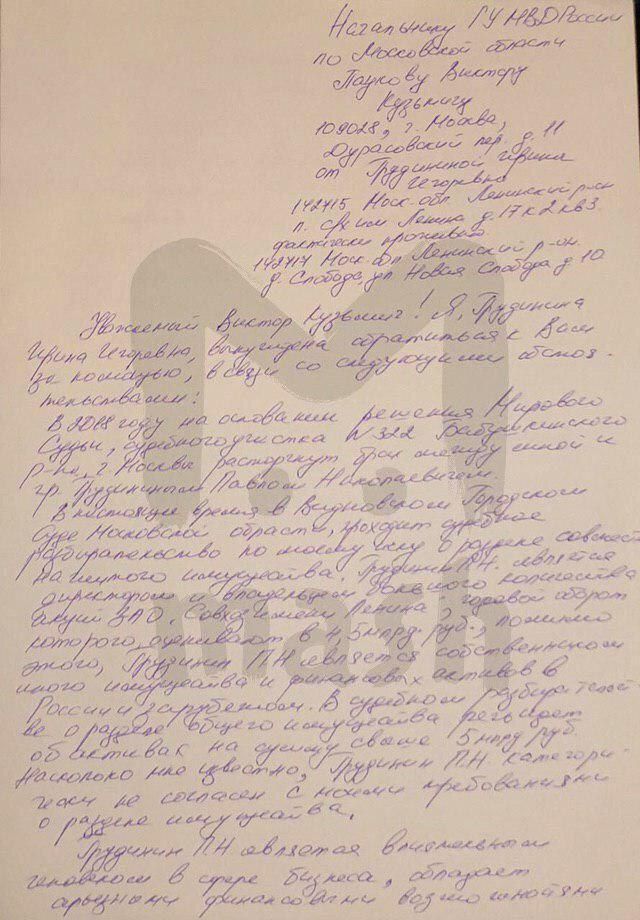 Начальнику ГУ МВД России
по Московской области
Паукову Виктору
Кузьмичу
109028, г. Москва,
Дурасовский пер. д. 11
от Грудининой Ирина
Игоревна
142715 Моск. обл. Ленинский р-он
п. с/х им Ленина д. 17 к 2 кв 3
фактически проживаю
142717 Моск. обл Ленинский р-он.
д. Слобода, ул Новая Слобода д 10
Уважаемый Виктор Кузьмич! Я, Грудинина
Ирина Игоревна, вынуждена обратиться к Вам
за помощью, в связи со следующими обстоя-
тельствами:
В 2018 году на основании решения Мирового
Судьи, судебного участка №322 Бабушкинского
р-на, г Москвы расторгнут брак между мной и
гр. Грудининым Павлом Николаевичем.
В настоящие время в Видновском Городском
Суде Московской области, проходит судебное
разбирательство по моему иску о разделе совмест
но нажитого имущества. Грудинин П.Н. является
директором и владельцем большого количества
акций ЗАО. Совхоз имени Ленина, годовой оборот
которого оценивают в 4,5 млрд. руб., помимо
этого, Грудинин П.Н является собственником
иного имущества и финансовых активов в
России и зарубежом. В судебном разбиратель
ве о разделе общего имущества речь идет
об активах на сумму свыше 5 млрд руб.
Насколько мне известно, Грудинин П.Н. категори-
чески не согласен с моими требованиями
о разделе имущества.
Грудинин П.Н является влиятельным
человеком в сфере бизнеса, обладает
серьезными финансовыми возможностями
М
mash